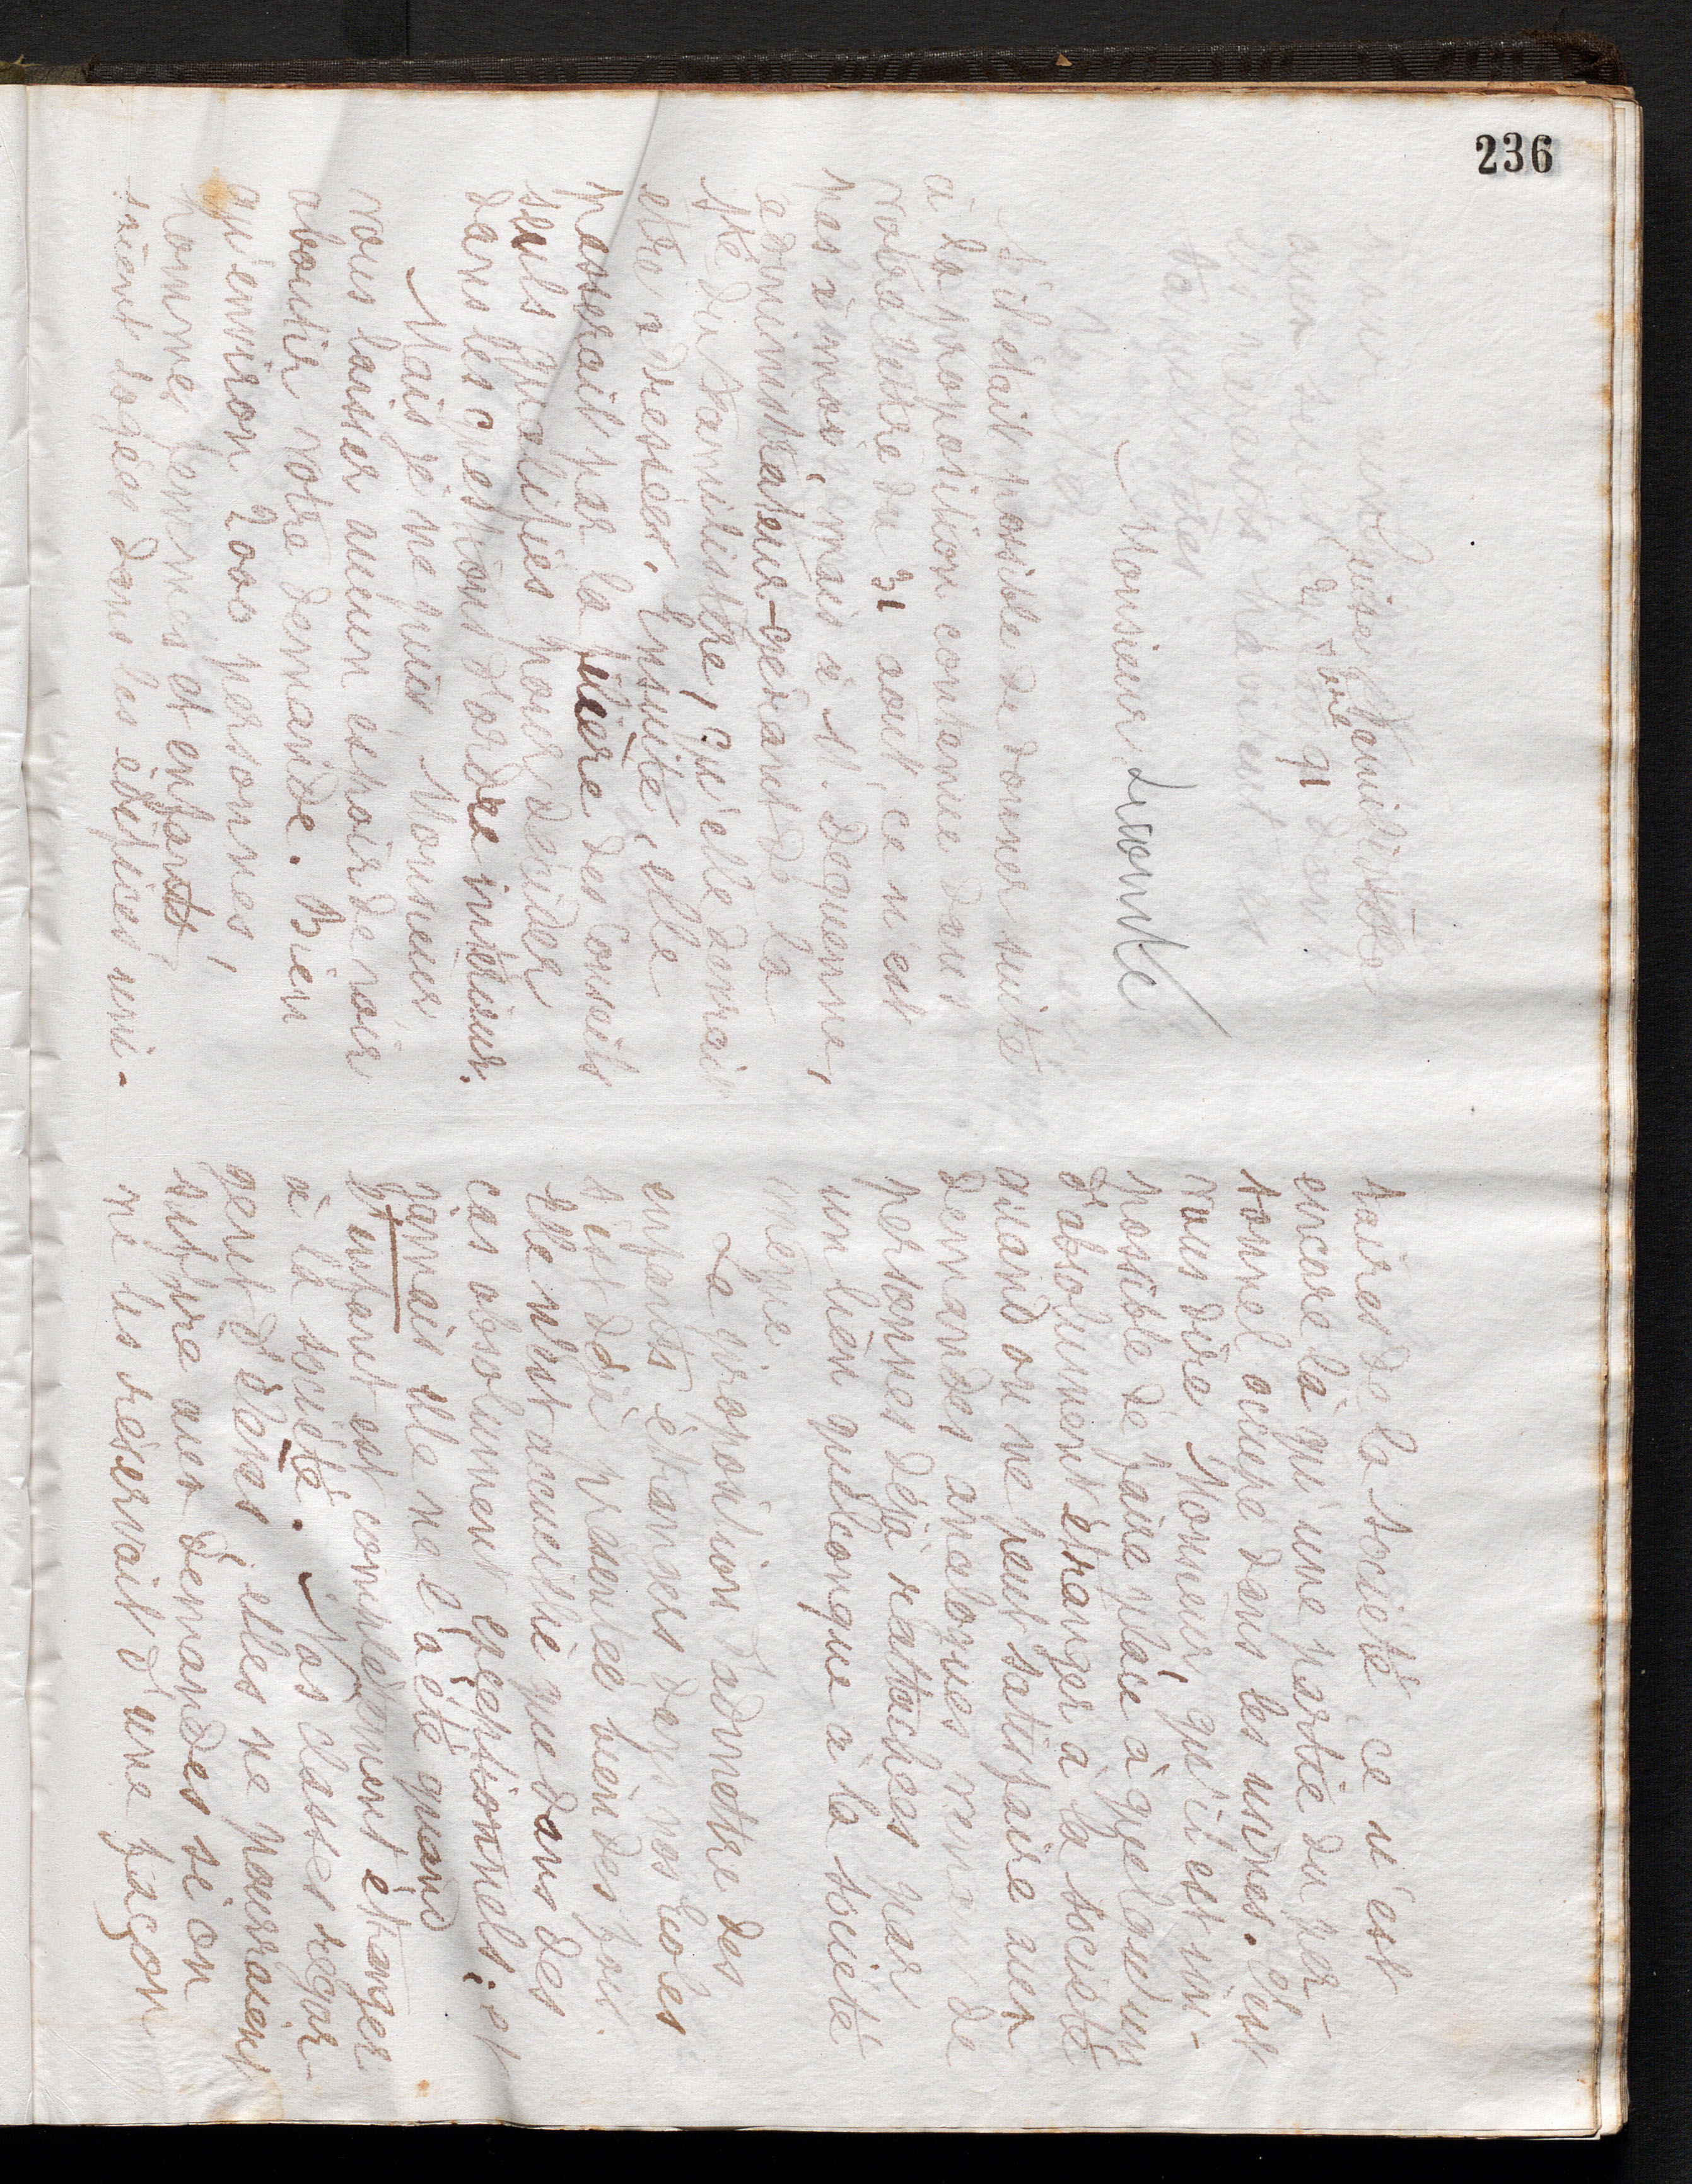 236
Guise Familistère
2 7bre 91
Monsieur Lecomte
S'il était possible de donner suite
à la proposition contenue dans
votre lettre du 31 aout, ce n'est
pas à moi, mais à M. Dequenne,
administrateur-gérant de la
Sté du Familistère, qu'elle devrait
être adressée. Ensuite, elle
passerait par la filière des Conseils
seuls qualifiés pour décider
dans les questions d'ordre intérieur.
Mais je ne puis Monsieur
vous laisser aucun espoir de voir
aboutir votre demande. Bien
qu'environ 2000 personnes,
hommes femmes et enfants
soient logées dans les édifices uni-
taires de la société ce n'est
encore là qu'une partie du per-
sonnel occupé dans les usines. C'est
vous dire Monsieur, qu'il est im-
possible de faire place à quelqu'un
d'absolument étranger à la société
quand on ne peut satisfaire aux
demandes analogues venues de
personnes déjà rattachées par
un lien quelconque à la société
même
La proposition d'admettre des
enfants étrangers dans nos écoles
s'est déjà présentée bien des fois.
Elle n'est accueillie que dans des
cas absolument exceptionnels; et
jamais elle ne l'a été quand
l'enfant est complètement étranger
à la société. Nos classes regor-
gent d'élèves, elles ne pourraient
suffire aux demandes si on
ne les réservait d'une façon